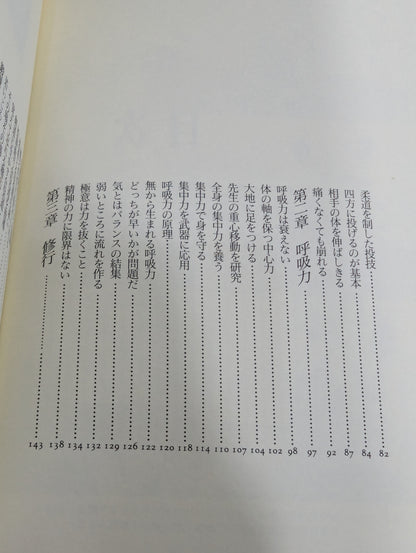 柔道を制した投技……82
四方に投げるのが基本……84
相手の体を伸ばしきる……87
痛くなくても崩れる……92
第二章 呼吸力……97
呼吸力は衰えない……98
体の軸を保つ中心力……102
大地に足をつける……104
先生の重心移動を研究……107
全身の集中力を養う……110
集中力で身を守る……114
集中力を武器に応用……118
呼吸力の原理……120
無から生まれる呼吸力……122
どっちが早いかが問題だ……126
気とはバランスの結集……129
弱いところに流れを作る……132
極意は力を抜くこと……134
精神の力に限界はない……138
第三章 修行……143